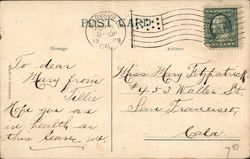 POST CARD
Message
Address
To dear
Mary from
Tillie
Hope you are
in health as
this leaves us.
Miss Mary Fitzpatrick
#453 Waller St,
San Francisco,
Cala.
Made in Germany
750